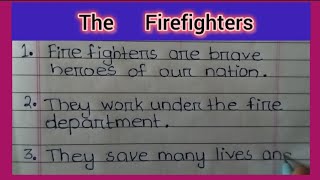 The Firefighters
1. Fire fighters are brave
heroes of our nation.
2. They work under the fire
department.
3. They save many lives and